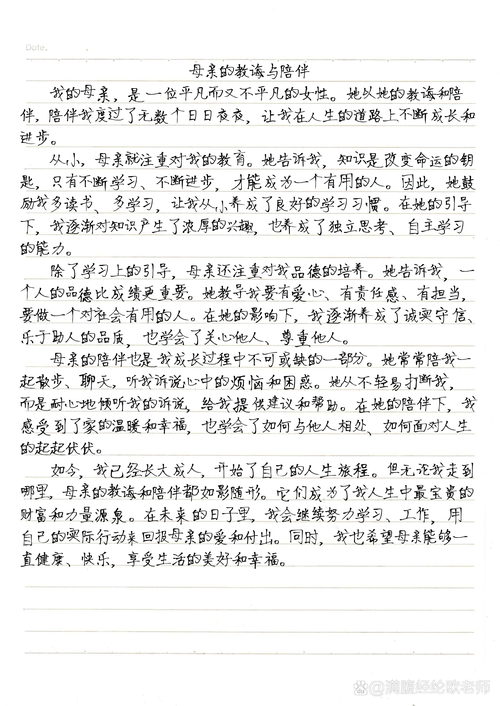 Date.
母亲的教诲与陪伴
我的母亲，是一位平凡而又不平凡的女性。她以她的教诲和陪
伴，陪伴我度过了无数个日日夜夜，让我在人生的道路上不断成长和
进步。
从小，母亲就注重对我的教育。她告诉我，知识是改变命运的钥
匙，只有不断学习、不断进步，才能成为一个有用的人。因此，她鼓
励我多读书、多学习，让我从小养成了良好的学习习惯。在她的引导
下，我逐渐对知识产生了浓厚的兴趣，也养成了独立思考、自主学习
的能力。
除了学习上的引导，母亲还注重对我品德的培养。她告诉我，一
个人的品德比成绩更重要。她教导我要有爱心、有责任感、有担当，
要做一个对社会有用的人。在她的影响下，我逐渐养成了诚实守信、
乐于助人的品质，也学会了关心他人、尊重他人。
母亲的陪伴也是我成长过程中不可或缺的一部分。她常常陪我一
起散步、聊天，听我诉说心中的烦恼和困惑。她从不轻易打断我，
而是耐心地倾听我的诉说，给我提供建议和帮助。在她的陪伴下，我
感受到了家的温暖和幸福，也学会了如何与他人相处、如何面对人生
的起起伏伏。
如今，我已经长大成人，开始了自己的人生旅程。但无论我走到
哪里，母亲的教诲和陪伴都如影随形。它们成为了我人生中最宝贵的
财富和力量源泉。在未来的日子里，我会继续努力学习、工作，用
自己的实际行动来回报母亲的爱和付出。同时，我也希望母亲能够一
直健康、快乐，享受生活的美好和幸福。
@满腹经纶欧老师